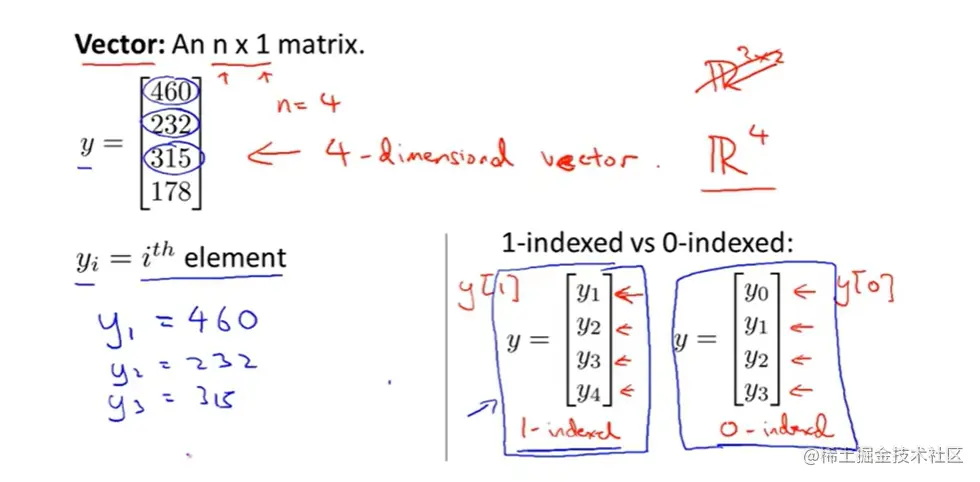 Vector: An n x 1 matrix.
ℝ^{3×2}
n = 4
y = [460 232 315 178]
← 4-dimensional vector.
ℝ^4
y_i = i^{th} element
y_1 = 460
y_2 = 232
y_3 = 315
1-indexed vs 0-indexed:
y[1]
y = [y_1 y_2 y_3 y_4]
1-indexed
y[0]
y = [y_0 y_1 y_2 y_3]
0-indexed
@稀土掘金技术社区